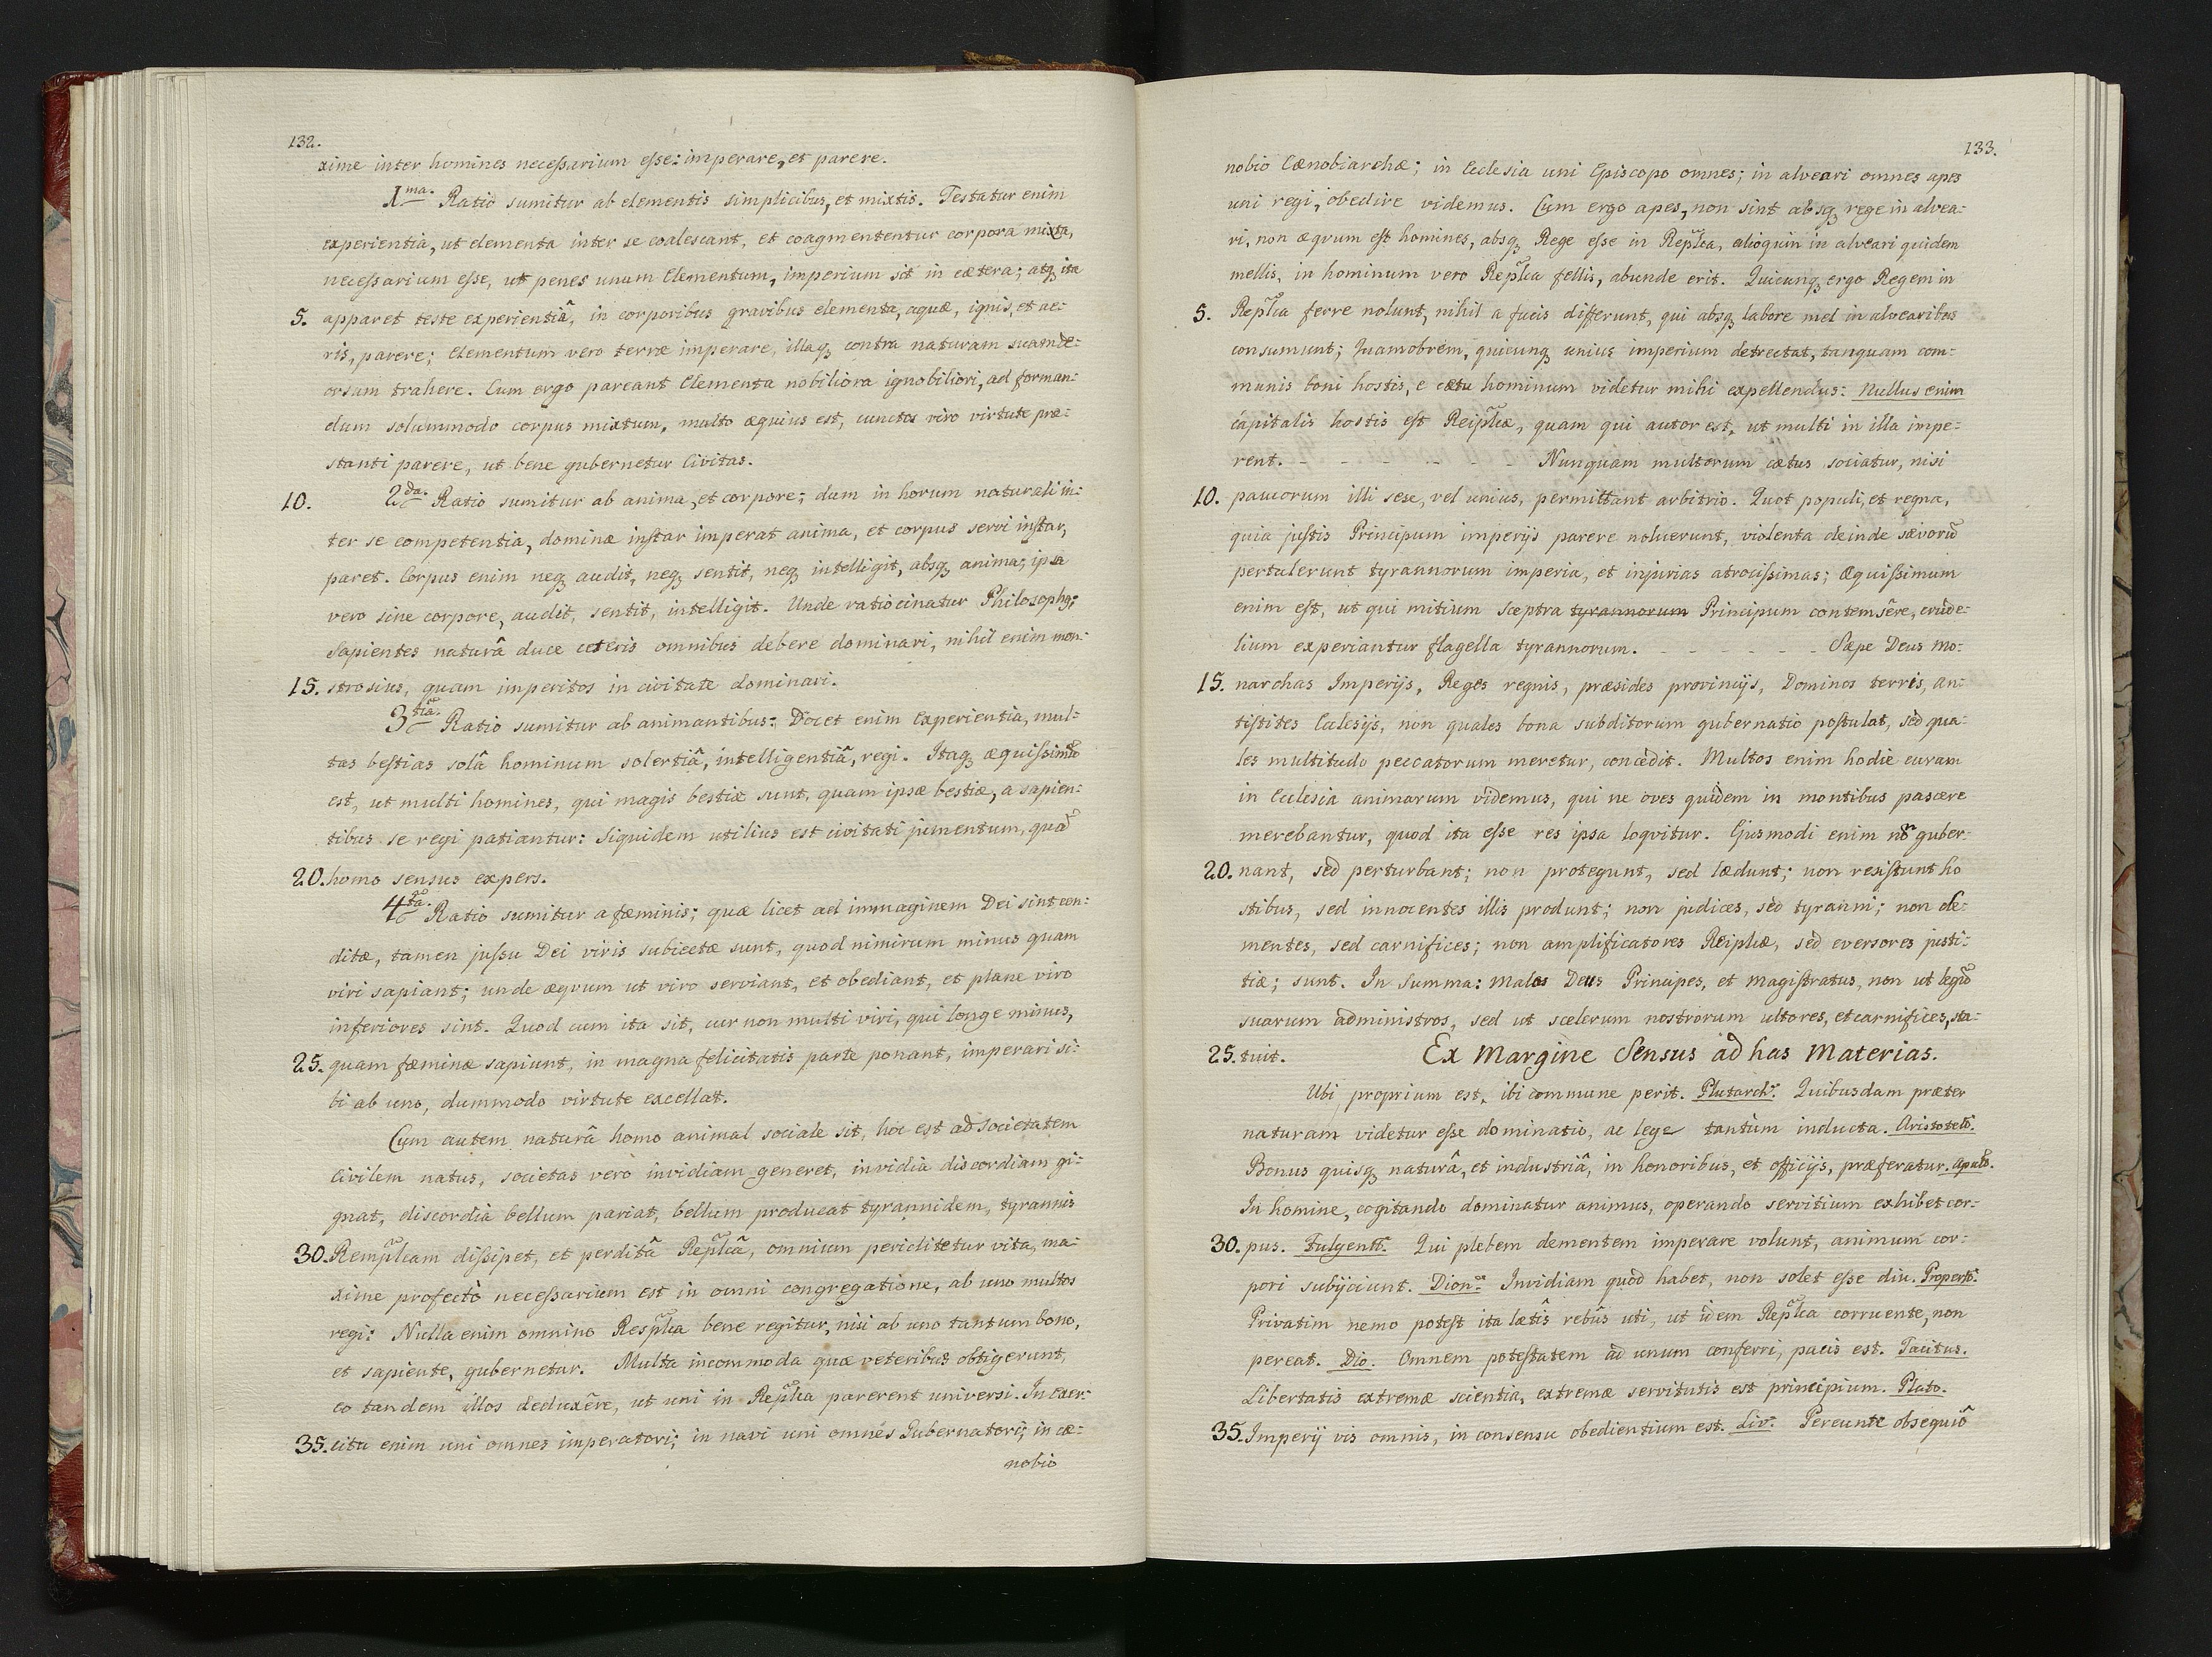 132.
xime inter homines necessarium esse: imperare, et parere.
1ma. Ratio sumitur ab elementis simplicibus, et mixtis. Testatur enim
experientia, ut elementa inter se coalescant, et coagmententur corpora mixta,
necessarium esse, ut penes unum Elementum, imperium sit in cætera; atq ita
5. apparet teste experientiâ, in corporibus gravibus elementa, aquæ, ignis, et ae:
ris, parere; Elementum vero terræ imperare, illaq contra naturam suam de:
orsum trahere. Cum ergo pareant Elementa nobiliora ignobiliori, ad forman:
dum solummodo corpus mixtum, multo æquius est, cunctos viro virtute præ:
stanti parere, ut bene gubernetur Civitas.
10. 2da. Ratio sumitur ab anima, et corpore; dum in horum naturali in:
ter se competentia, dominæ instar imperat anima, et corpus servi instar,
paret. Corpus enim neq audit, neq sentit, neq intelligit, absq anima; ipsa
vero sine corpore, audit, sentit, intelligit. Unde ratiocinatur Philosophq:
Sapientes naturâ duce ceteris omnibus debere dominari, nihil enim mon:
15. strosius, quam imperitos in civitate dominari.
3tia. Ratio sumitur ab animantibus: Docet enim Experientia, mul:
tas bestias solâ hominum solertiâ, intelligentiâ, regi. Itaq æquissimũ
est, ut multi homines, qui magis bestiæ sunt, quam ipsæ bestiæ, a sapien:
tibus se regi patiantur: Siquidem utilius est civitati jumentum, quã
20. homo sensus expers.
4ta. Ratio sumitur a fæminis; quæ licet ad immaginem Dei sint con:
ditæ, tamen jussu Dei viris subiectæ sunt, quod nimirum minus quam
viri sapiant; unde æqvum ut viro serviant, et obediant, et plane viro
inferiores sint. Quod cum ita sit, cur non multi viri, qui longe minus,
25. quam fæminæ sapiunt, in magna felicitatis parte ponant, imperari si:
bi ab uno, dummodo virtute excellat.
Cum autem naturâ homo animal sociale sit, hoc est ad societatem
Civilem natus, societas verò invidiam generet, invidia discordiam gi:
gnat, discordia bellum pariat, bellum producat tyrannidem, tyrannis
30. Remplcam dissipet, et perditâ Replcâ, omnium periclitetur vita, ma:
xime profectò necessarium est in omni congregatione, ab uno multos
regi: Nulla enim omnino Resplca bene regitur, nisi ab uno tantum bono,
et sapiente, gubernetur. Multa incommoda quæ veteribus obtigerunt,
eo tandem illos deduxêre, ut uni in Replca parerent universi. In exer:
35. citu enim uni omnes imperatori; in navi uni omnes Gubernatori; in cæ:
nobio
133.
nobio Cænobiarchæ; in Ecclesia uni Episcopo omnes; in alveari omnes apes
uni regi, obedire videmus. Cum ergo apes, non sint absq rege in alvea:
ri, non æqvum est homines, absq Rege esse in Replca, alioquin in alveari quidem
mellis, in hominum vero Replca fellis, abunde erit. Quicunq ergo Regem in
5. Replca ferre nolunt, nihil a fucis differunt, qui absq labore mel in alvearibus
consumunt; Quamobrem, quicunq unius imperium detrectat, tanquam com:
munis boni hostis, e cætu hominum videtur mihi expellendus: Nullus enim
capitalis hostis est Reiplcæ, quam qui autor est, ut multi in illa impe:
rent. - - - - - - Nunquam multorum cætus sociatur, nisi
10. paucorum illi sese, vel unius, permittant arbitrio. Quot populi, et regna,
quia justis Principum imperijs parere noluerunt, violenta deinde sævorũ
pertulerunt tyrannorum imperia, et injurias atrocissimas; Æquissimum
enim est, ut qui mitium sceptra tyrannorum Principum contemsêre, crude:
lium experiantur flagella tyrannorum. - - - - - - Sæpe Deus Mo:
15. narchas Imperijs, Reges regnis, præsides provincijs, Dominos terris, an:
tistites Ecclesijs, non quales bona subditorum gubernatio postulat, sed qua:
les multitudo peccatorum meretur, concedit. Multos enim hodie curam
in Ecclesia animarum videmus, qui ne oves quidem in montibus pascere
merebantur, quod ita esse res ipsa loqvitur. Ejusmodi enim nõ guber:
20. nant, sed perturbant; non protegunt, sed lædunt; non resistunt ho
stibus, sed innocentes illis produnt; non judices, sed tyranni; non cle:
mentes, sed carnifices; non amplificatores Reiplcæ, sed eversores justi:
tiæ; sunt. In Summa: Malos Deus Principes, et Magistratus, non ut legũ
suarum administros, sed ut scelerum nostrorum ultores, et carnifices, sta:
25. tuit. Ex Margine Sensus ad has Materias.
Ubi proprium est, ibi commune perit. Plutarch: Quibusdam præter
naturam videtur esse dominatio, ac lege tantùm inducta. Aristotelo.
Bonus quisq naturâ, et industriâ, in honoribus, et officijs, præferatur.
In homine, cogitando dominatur animus, operando servitium exhibet cor:
30. pus. Fulgentt. Qui plebem dementem imperare volunt, animum cor:
pori subijciunt. Dion: Invidiam quòd habet, non solet esse diu. Propert:
Privatim nemo potest ita lætis rebûs uti, ut idem Replca corruente, non
pereat. Dio. Omnem potestatem ad unum conferri, pacis est. Tacitus.
Libertatis extremæ scientia, extremæ servitutis est principium. Plato.
35. Imperij vis omnis, in consensu obedientium est. Liv: Pereunte obsequiô